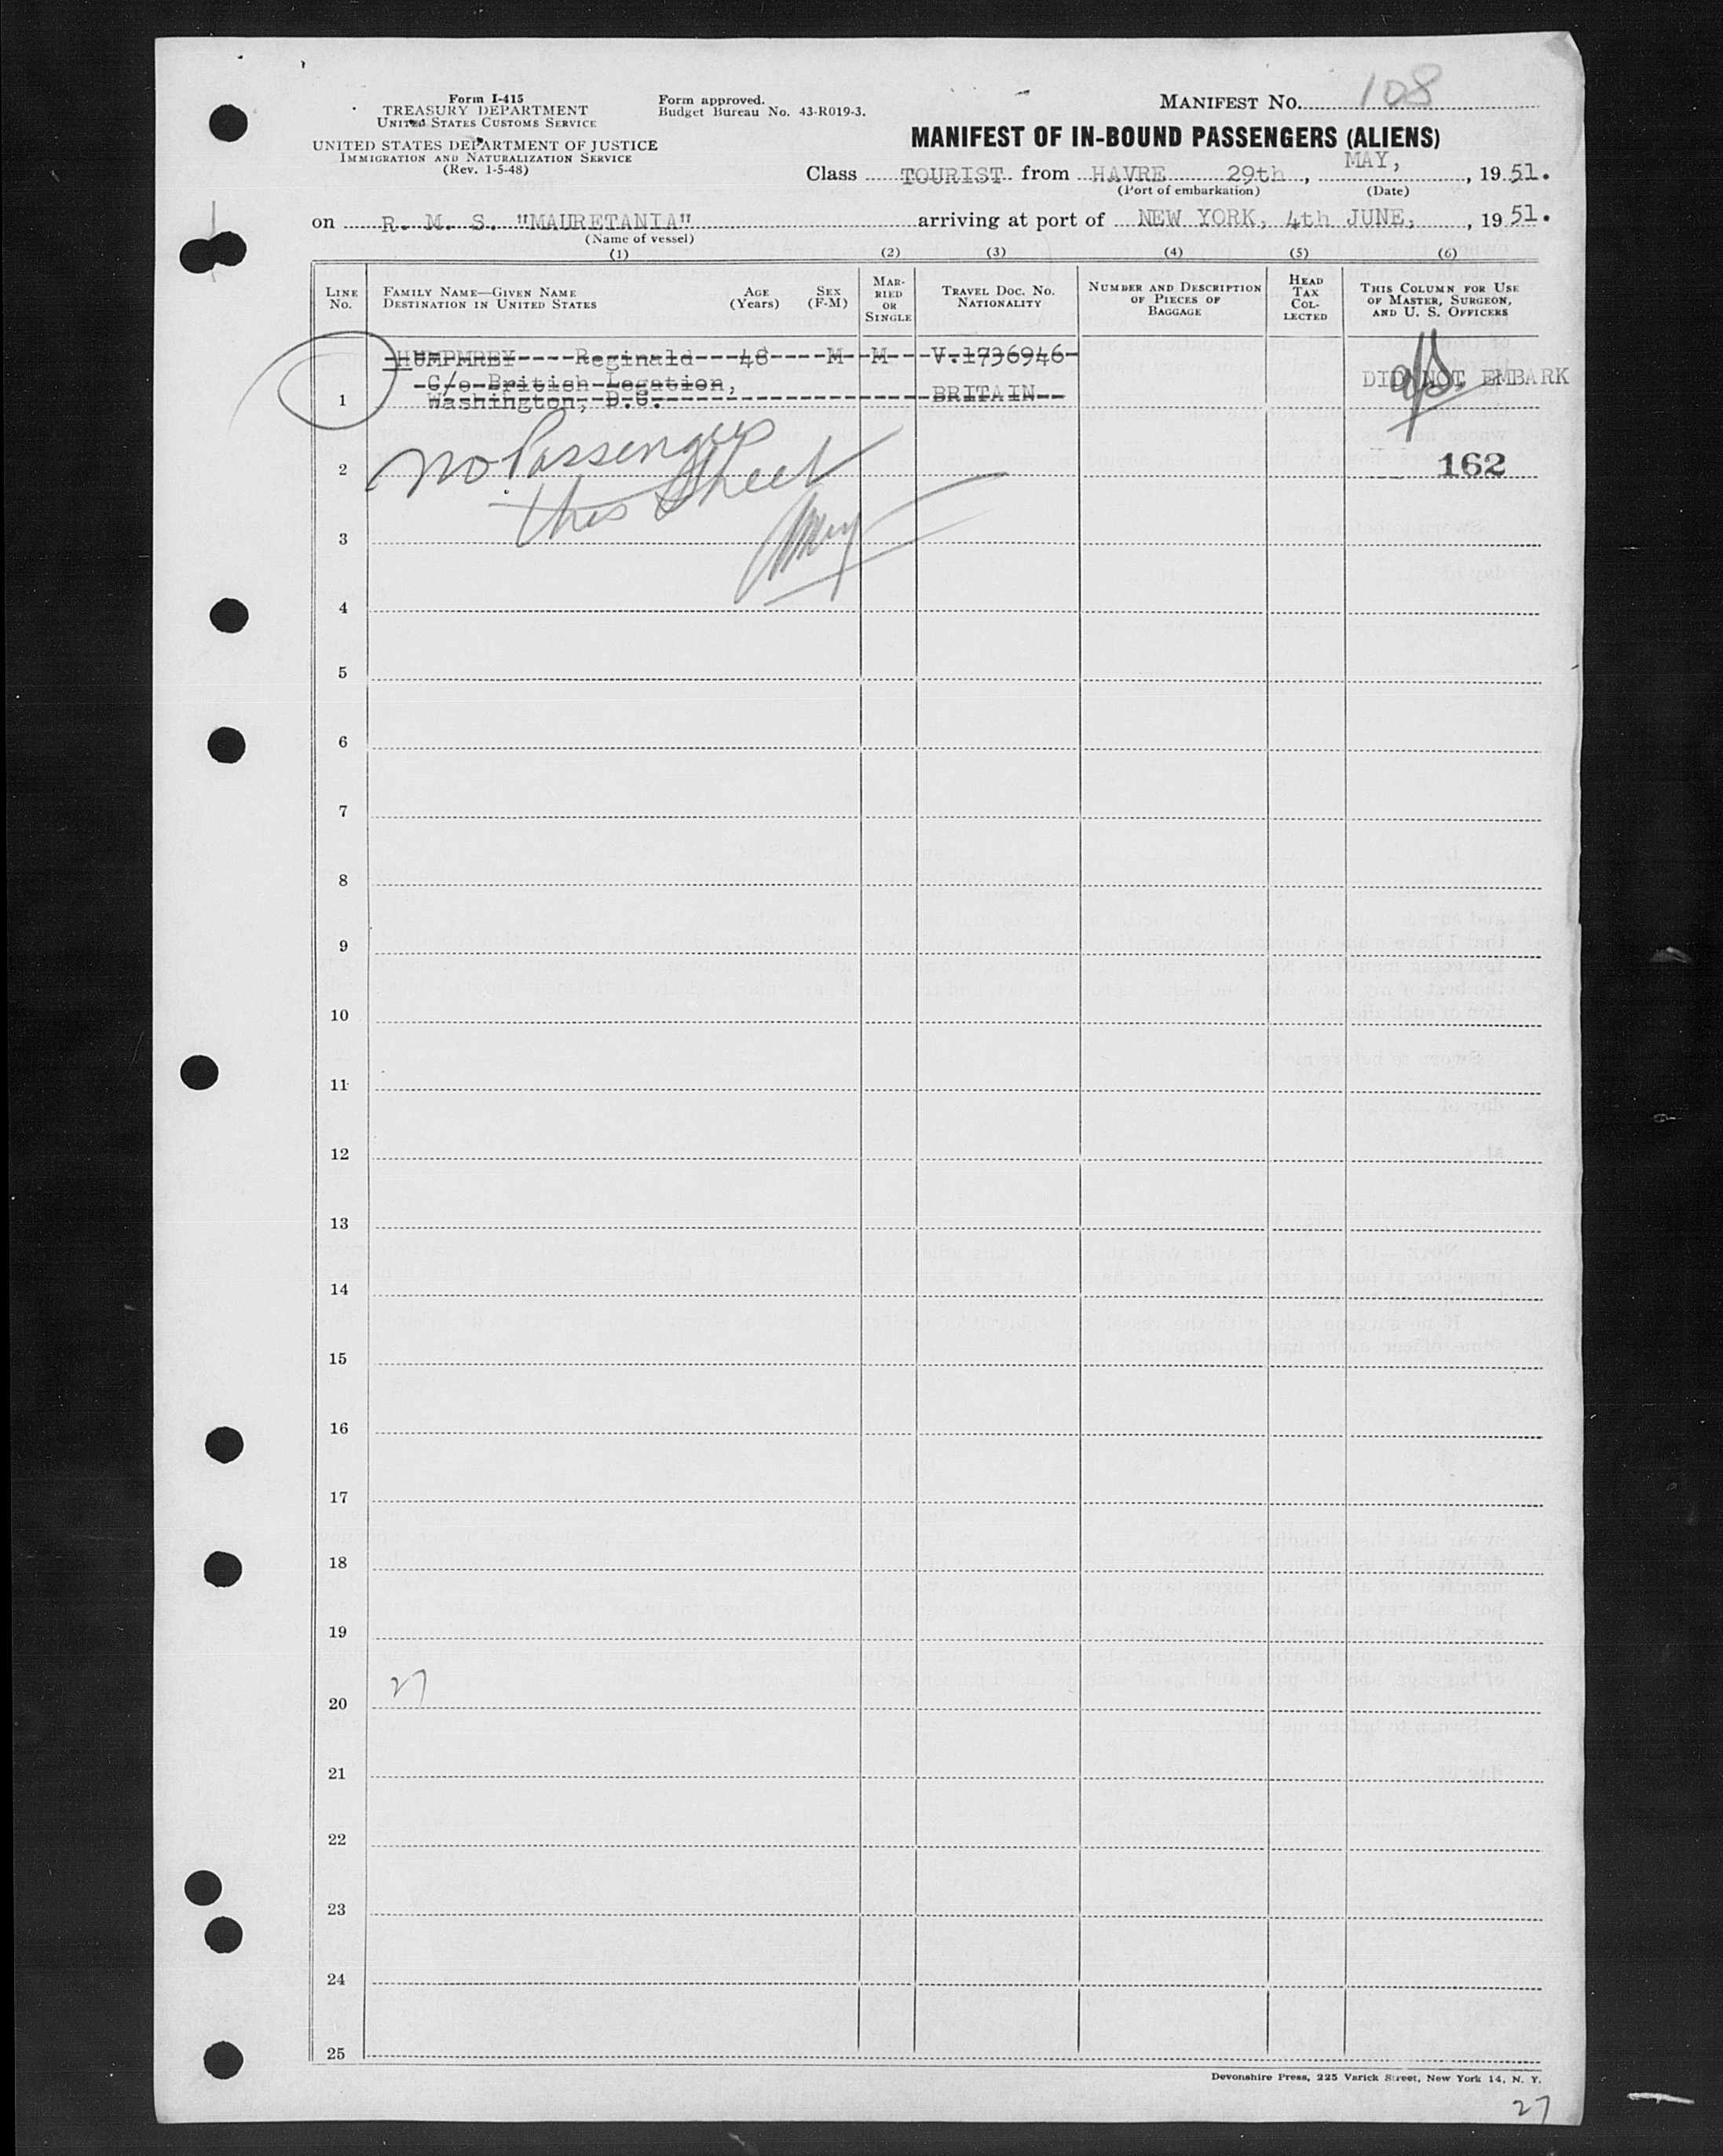 Form I-415
TREASURY DEPARTMENT
UNITED STATES CUSTOMS SERVICE
UNITED STATES DEPARTMENT OF JUSTICE
IMMIGRATION AND NATURALIZATION SERVICE
(Rev. 1-5-48)
Form approved.
Budget Bureau No. 43-R019-3.
MANIFEST NO. 108
MANIFEST OF IN-BOUND PASSENGERS (ALIENS)
Class TOURIST from HAVRE 29th, MAY, 1951.
(Port of embarkation) (Date)
on R. M. S. "MAURETANIA" arriving at port of NEW YORK, 4th JUNE, 1951.
(Name of vessel)
(1) (2) (3) (4) (5) (6)
LINE NO. FAMILY NAME—GIVEN NAME DESTINATION IN UNITED STATES AGE (Years) SEX (F-M) MARRIED OR SINGLE TRAVEL DOC. NO. NATIONALITY NUMBER AND DESCRIPTION OF PIECES OF BAGGAGE HEAD TAX COLLECTED THIS COLUMN FOR USE OF MASTER, SURGEON, AND U. S. OFFICERS
HUMPMREY----Reginald---48----M--M---V.1736946-
C/o British Legation, DID NOT EMBARK
1 Washington, D.C. BRITAIN--
No Passengers
2 162
this Sheet
3
4
5
6
7
8
9
10
11
12
13
14
15
16
17
18
19
27
20
21
22
23
24
25
Devonshire Press, 225 Varick Street, New York 14, N. Y.
27